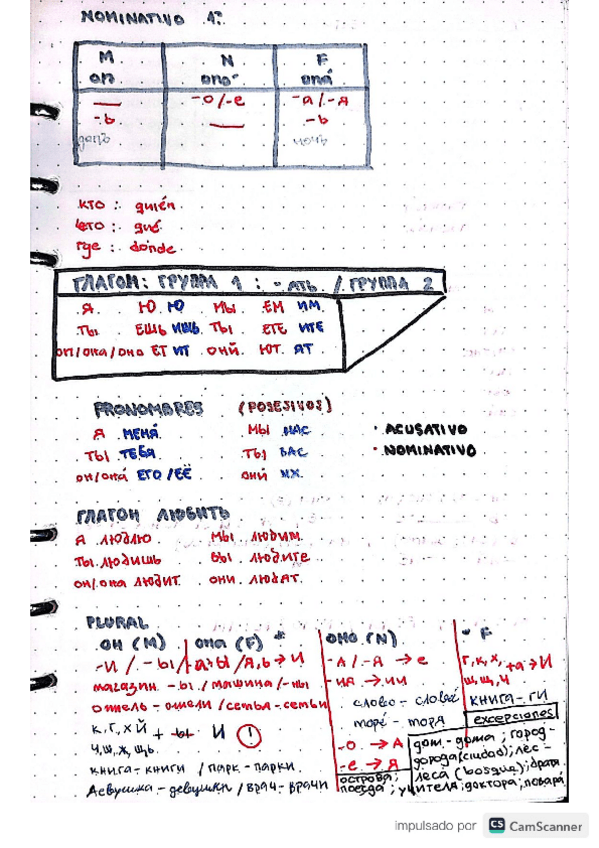 NOMINATIVO 1º
M N F
он оно́ она́
— -о/-е -а/-я
-ь — -ь
ночь
кто: quién
что: qué
где: dónde
ГЛАГОЛ: ГРУППА 1 : -АТЬ. / ГРУППА 2
Я. Ю. Ю МЫ. ЕМ ИМ.
ТЫ. ЕШЬ ИШЬ. ТЫ. ЕТЕ ИТЕ
он/она/оно ЕТ ИТ ОНЙ. ЮТ. ЯТ
PRONOMBRES (POSESIVOS)
Я МЕНЯ́ МЫ НАС • ACUSATIVO
ТЫ ТЕБЯ ТЫ ВАС • NOMINATIVO
он/она́ ЕГО/ЕЁ ОНИ́ ИХ
ГЛАГОЛ ЛЮБИТЬ
Я люблю МЫ любим.
ТЫ любишь ВЫ любите
он/она любит. они. любят.
PLURAL
ОН (М) ОНА (F) * ОНО (N) - F
-И / -Ы /-а→Ы /Я,Ь→И -А/-Я → е г,к,х, +а→И
магазин -ы / машина/-ны -ИЯ →.ИИ ш,щ,ч
отель-отели/семья-семьи слово- книга-ги
к,г,х й + ы И ! море- моря excepciones
ч,ш,ж,щь. -о. → А дом-дома; город-
книга-книги /парк-парки. -е. → Я города(ciudad); лес-
девушка-девушки/врач-врачи острова; леса (bosque);
поезда; учителя; доктора; повара
impulsado por CS CamScanner